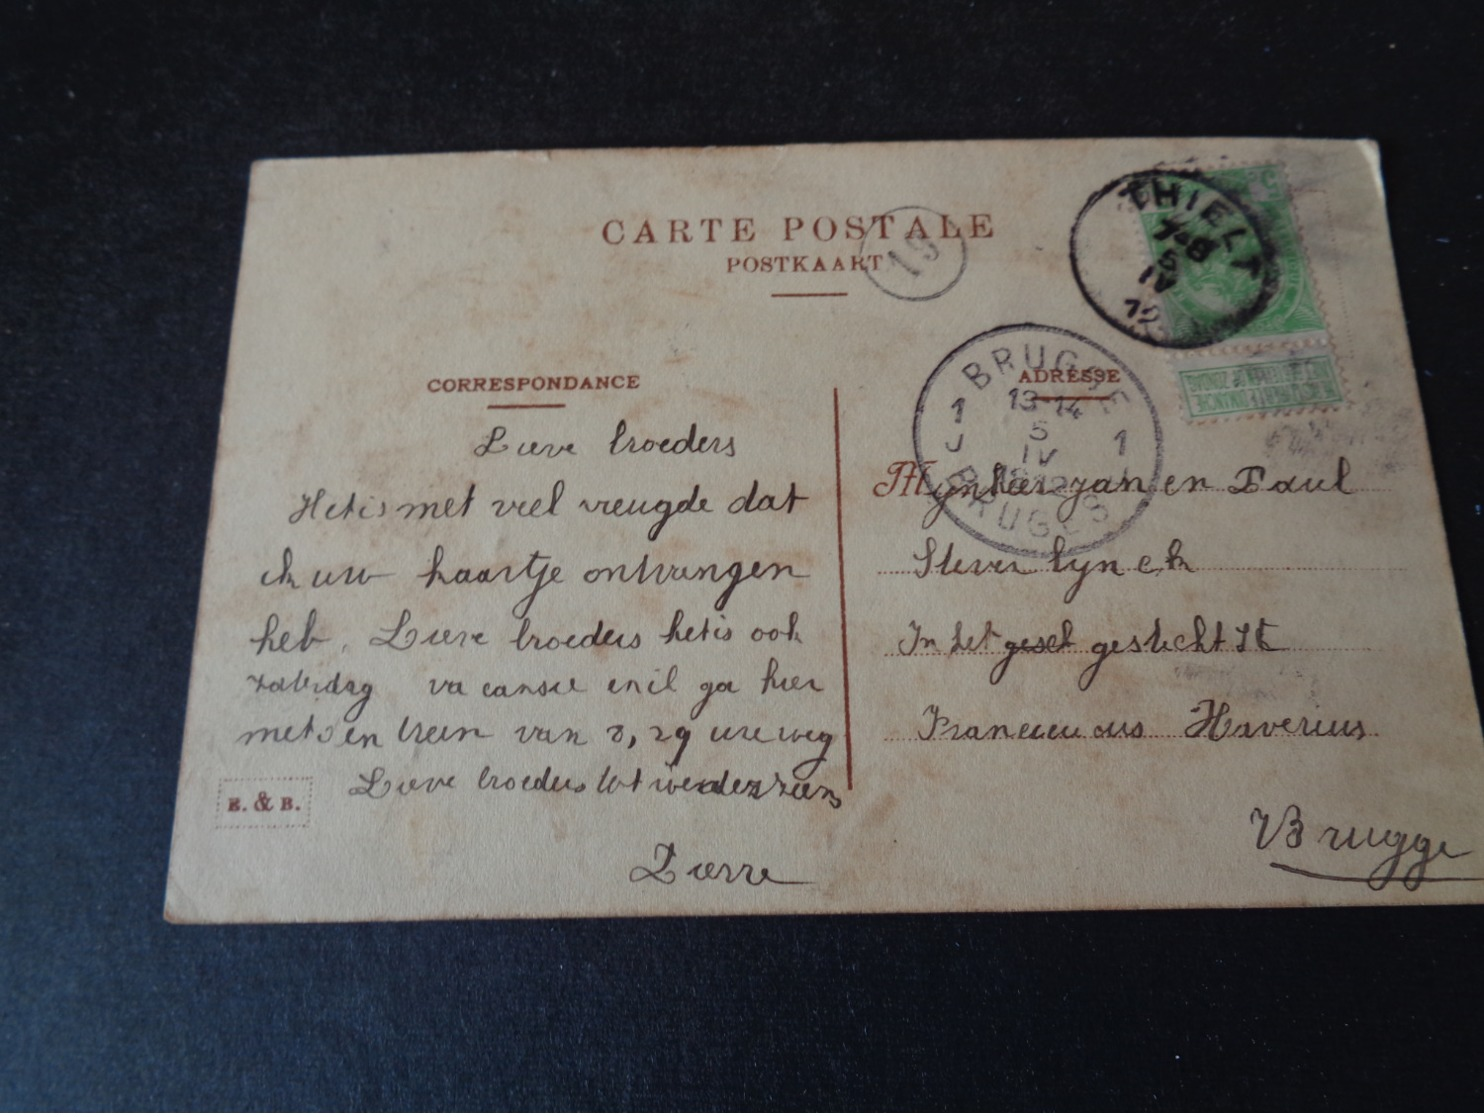 CARTE POSTALE
POSTKAART
19
THIELT
7-8
5
IV
12
BRUGGE
13-14
5
IV
1 J 1
BRUGES
CORRESPONDANCE
Lieve broeders
Het is met veel vreugde dat
ik uw kaartje ontvangen
heb. Lieve broeders het is ook
zaterdag vacansie en ik ga hier
met den trein van 8,29 ure weg
Lieve broeders tot wederzien
Pierre
E. & B.
ADRESSE
Mynheer jan en Paul
Steverlynck
In het gesch gesticht St
Franciscus Xaverius
Brugge